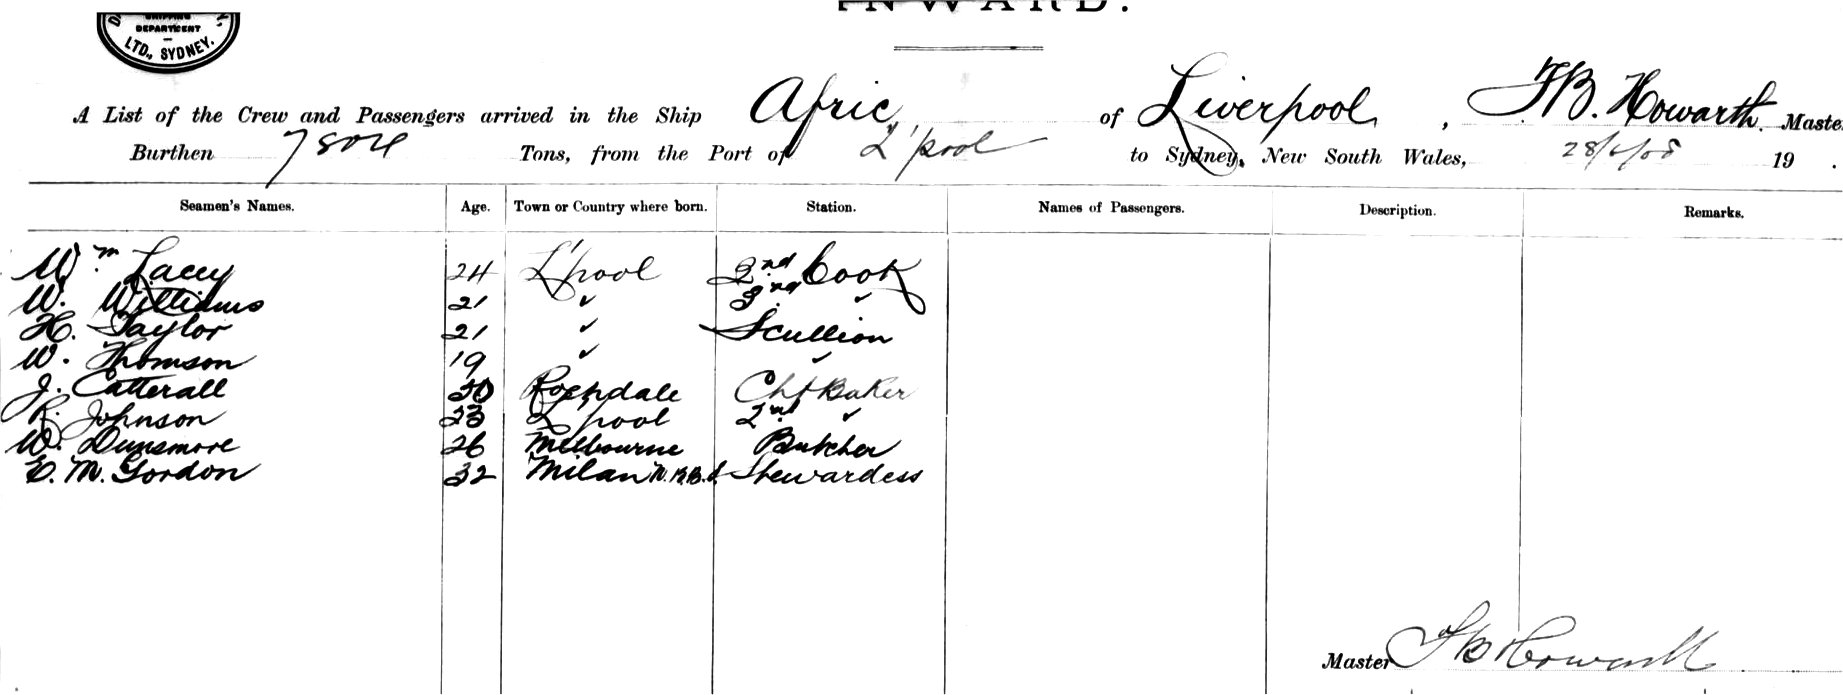 INWARD.
SHIPPING
DEPARTMENT
LTD., SYDNEY.
A List of the Crew and Passengers arrived in the Ship Afric of Liverpool, F B. Howarth Master
Burthen 7804 Tons, from the Port of L'pool to Sydney, New South Wales, 28/6/08 19 .
Seamen's Names. Age. Town or Country where born. Station. Names of Passengers. Description. Remarks.
Wm Lacey 24 L'pool 2nd Cook
W. Williams 21 ✓ 3rd ✓
H. Taylor 21 ✓ Scullion
W. Thomson 19 ✓ ✓
J. Catterall 30 Rochdale Chf Baker
R. Johnson 23 L'pool 2nd ✓
W. Dunsmore 26 Melbourne Butcher
E. M. Gordon 32 Milan Stewardess
Master F B Howarth